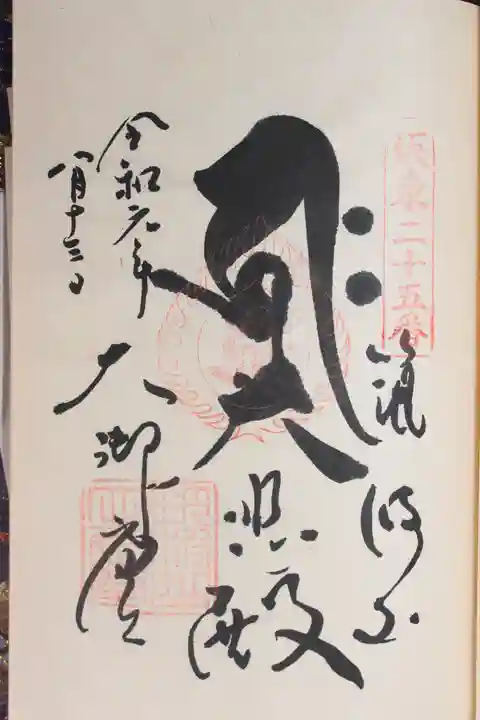 坂東二十五番
筑波山
大悲殿
大御堂
令和元年
八月十三日